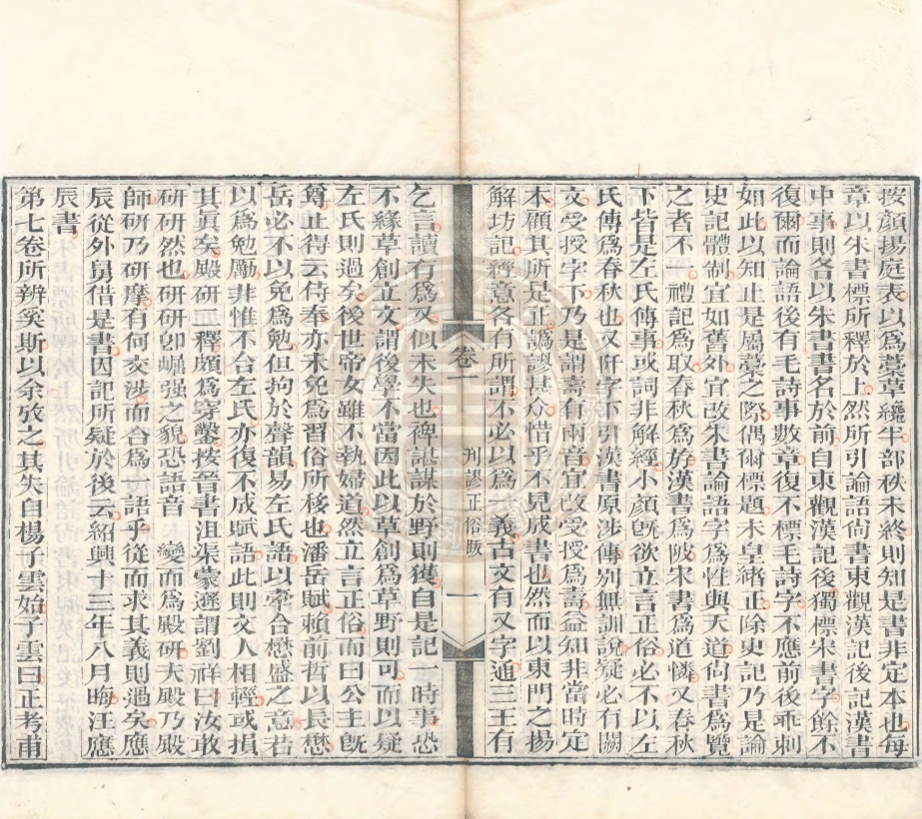 按顏揚庭表以爲藁草纔半部秩未終則知是書非定本也每
章以朱書標所釋於上然所引論語尙書東觀漢記後記漢書
中事則各以朱書書名於前自東觀漢記後獨標宋書字餘不
復爾而論語後有毛詩事數章復不標毛詩字不應前後乖刺
如此以知止是屬藁之際偶爾標題未皇緒正除史記乃是論
史記體制宜如舊外宜改朱書論語字爲性與天道尙書爲覽
之者不一禮記爲取春秋爲㫄漢書爲陂宋書爲道憐又春秋
下皆是左氏傳事或詞非解經小顏旣欲立言正俗必不以左
氏傳爲春秋也又阡字下引漢書原涉傳别無訓說疑必有闕
文受授字下乃是謂壽有兩音宜改受授爲壽益知非當時定
本顧其所是正譌謬甚众惜乎不見成書也然而以東門之揚
解坊記經意各有所謂不必以爲一義古文有又字通三王有
卷一
刊謬正俗跋
一
乞言讀有爲又似未失也裨諶謀於野則獲自是記一時事恐
不緣草創立文謂後學不當因此以草創爲草野則可而以疑
左氏則過矣後世帝女雖不執婦道然立言正俗而曰公主旣
尊止得云侍奉亦未免爲習俗所移也潘岳賦賴前哲以長懋
岳必不以免爲勉但拘於聲韻易左氏語以牽合懋盛之意若
以爲勉勵非惟不合左氏亦復不成賦語此則文人相輕或損
其眞矣殿研二釋頗爲穿鑿按晉書沮渠蒙遜謂劉祥曰汝敢
研研然也研研卽崛强之貌恐語音 變而爲殿研夫殿乃殿
師研乃研摩有何交涉而合爲一語乎從而求其義則過矣應
辰從外舅借是書因記所疑於後云紹興十三年八月晦汪應
辰書
第七卷所辨奚斯以余攷之其失自楊子雲始子雲曰正考甫